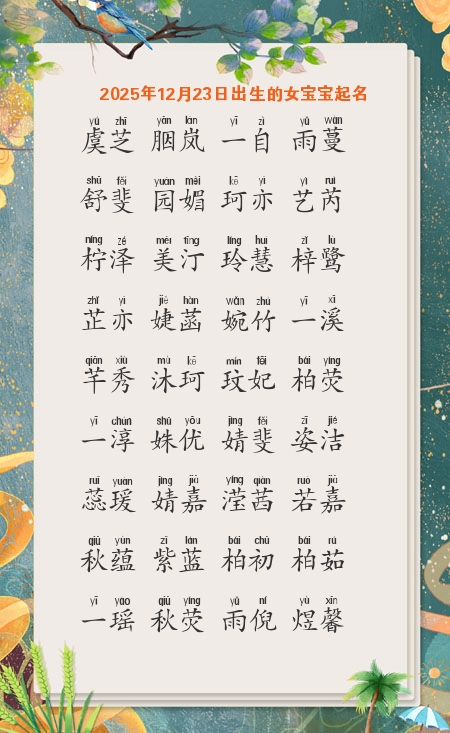 2025年12月23日出生的女宝宝起名
yú zhī yān lán yī zì yǔ wàn
虞芝 胭岚 一自 雨蔓
shū fěi yuán mèi kē yì yì ruì
舒斐 园媚 珂亦 艺芮
níng zé měi tīng líng huì zǐ lù
柠泽 美汀 玲慧 梓鹭
zhǐ yì jié hàn wǎn zhú yī xī
芷亦 婕菡 婉竹 一溪
qiān xiù mù kē mín fēi bǎi yíng
芊秀 沐珂 玟妃 柏荧
yī chún shū yōu jìng fěi zī jié
一淳 姝优 婧斐 姿洁
ruǐ yuàn jìng jiā yíng qiàn ruò jiā
蕊瑗 婧嘉 滢茜 若嘉
qiū yùn zǐ lán bǎi chū bǎi rú
秋蕴 紫蓝 柏初 柏茹
yī yáo qiū yíng yǔ ní yù xīn
一瑶 秋荧 雨倪 煜馨